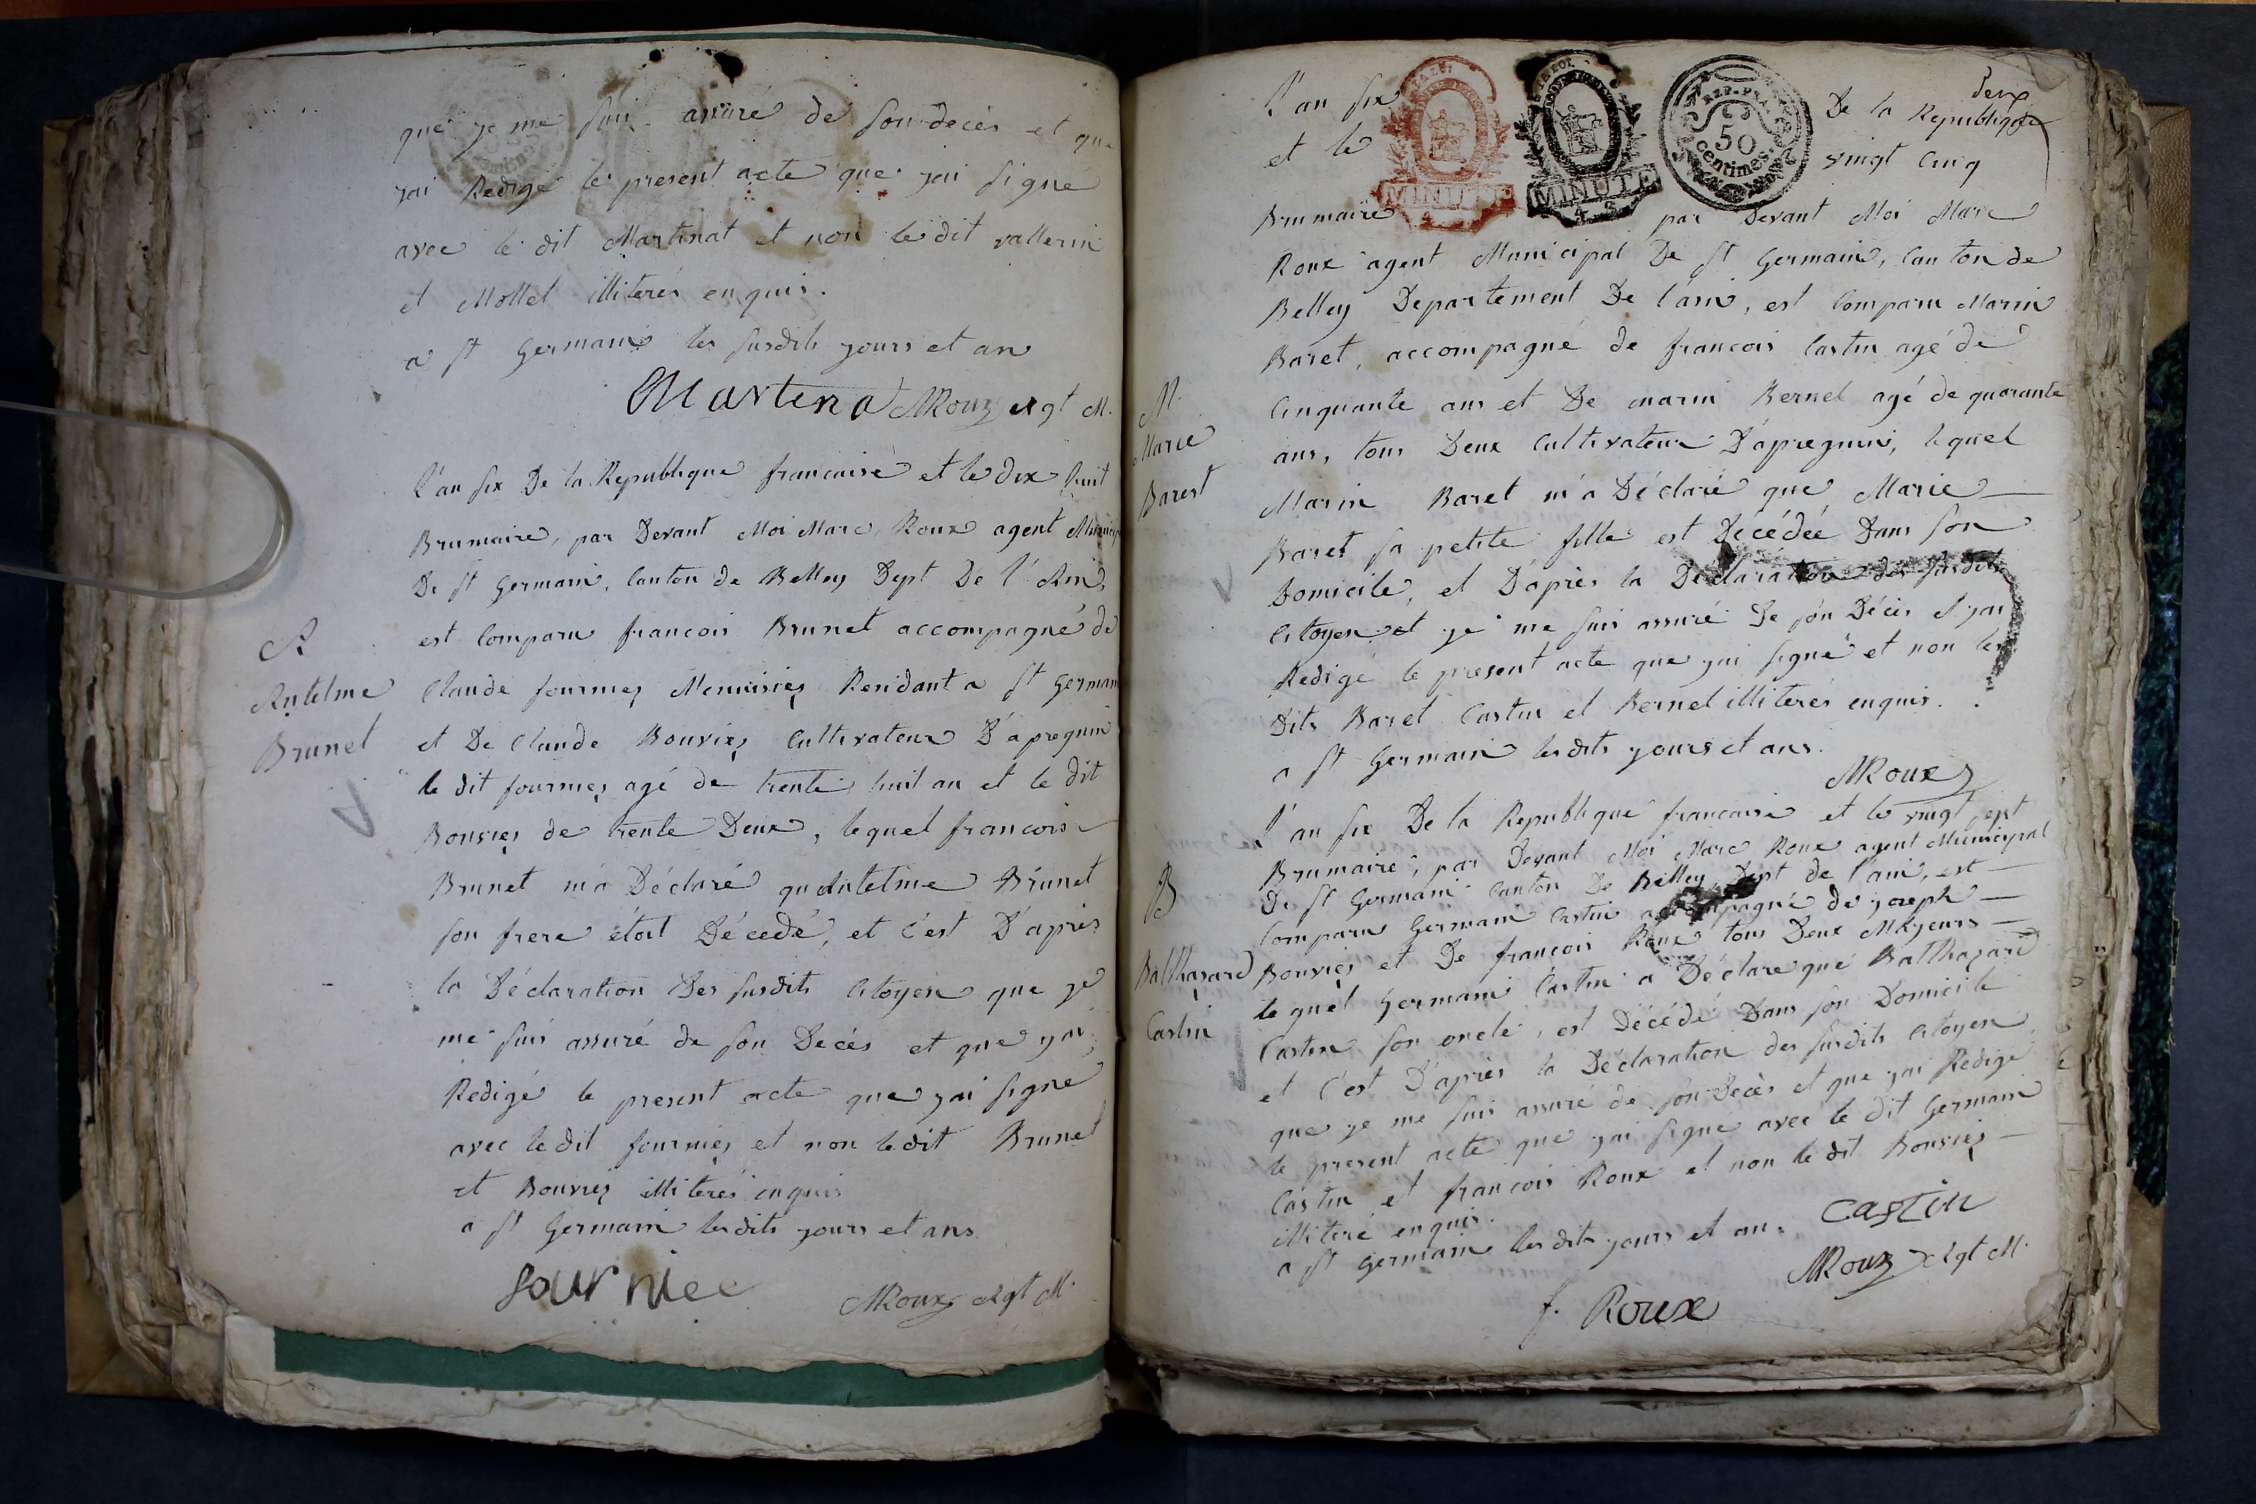 que je me suis assuré de son deces et que
jai Redigé le present acte que jai signé
avec le dit Martinat et non le dit vallerin
et Mollet illiterés enquis.
a st Germain les susdits jours et an
Martina MRoux agt M.
l'an six De la Republique francaise et le dix huit
Brumaire, par Devant Moi Marc Roux agent Municip
De st Germain, Canton de Belley Dept De l'Ain,
est Comparu francois Brunet accompagné de
A
Antelme
Brunet
Claude fournier Menuisier Residant a st Germain
et De Claude Bouvier Cultivateur D'apregnin
le dit fournier agé de trente huit an et le dit
Bouvier de trente Deux, lequel francois
Brunet m'a Déclaré qu'Antelme Brunet
son frere étoit Décedé, et C'est D'après
la Déclaration Des susdits Citoyen que je
me suis assuré de son Decés et que jai
Redigé le present acte que jai signe
avec le dit fournier et non le dit Brunet
et Bouvier illiterés enquis
a st Germain les dits jours et ans
fournier
MRoux Agt M.
l'an six De la Republique
deux
et le vingt Cinq
MINUTE
MINUTE
REP. FRA.
50
centimes
Brumaire par Devant Moi Marc
Roux agent Municipal De st Germain, Canton de
Belley Departement De l'ain, est Comparu Marin
Baret, accompagné de francois Castin agé de
M.
Marie
Barest
Cinquante ans et De marin Bernel agé de quarante
ans, tous Deux Cultivateur D'apregnin, lequel
Marin Baret m'a Déclaré que Marie
Baret sa petite fille est Décédée Dans son
Domicile, et D'après la Déclaration des susdits
Citoyen et je me suis assuré De son Décès et jai
Redigé le present acte que jai signé et non les
Dits Baret Castin et Bernel illiterés enquis.
a st Germain les dits jours et ans.
MRoux
l'an six De la Republique francaise et le vingt sept
Brumaire, par Devant Moi Marc Roux agent Municipal
De st Germain Canton De Belley Dept de l'ain, est
Comparu Germain Castin accompagné de joseph
B
Balthazard
Castin
Bouvier et De françois Roux tous Deux Majeurs
lequel Germain Castin a Déclare que Balthazard
Castin son oncle, est Décédé Dans son Domicile
et C'est D'après la Déclaration des susdits Citoyen
que je me suis assuré de son Decès et que jai Redigé
le present acte que jai signe avec le dit Germain
Castin et francois Roux et non le dit Bouvier
illiteré enquis.
a st Germain les dits jours et an.
Castin
MRoux Agt M.
f. Roux